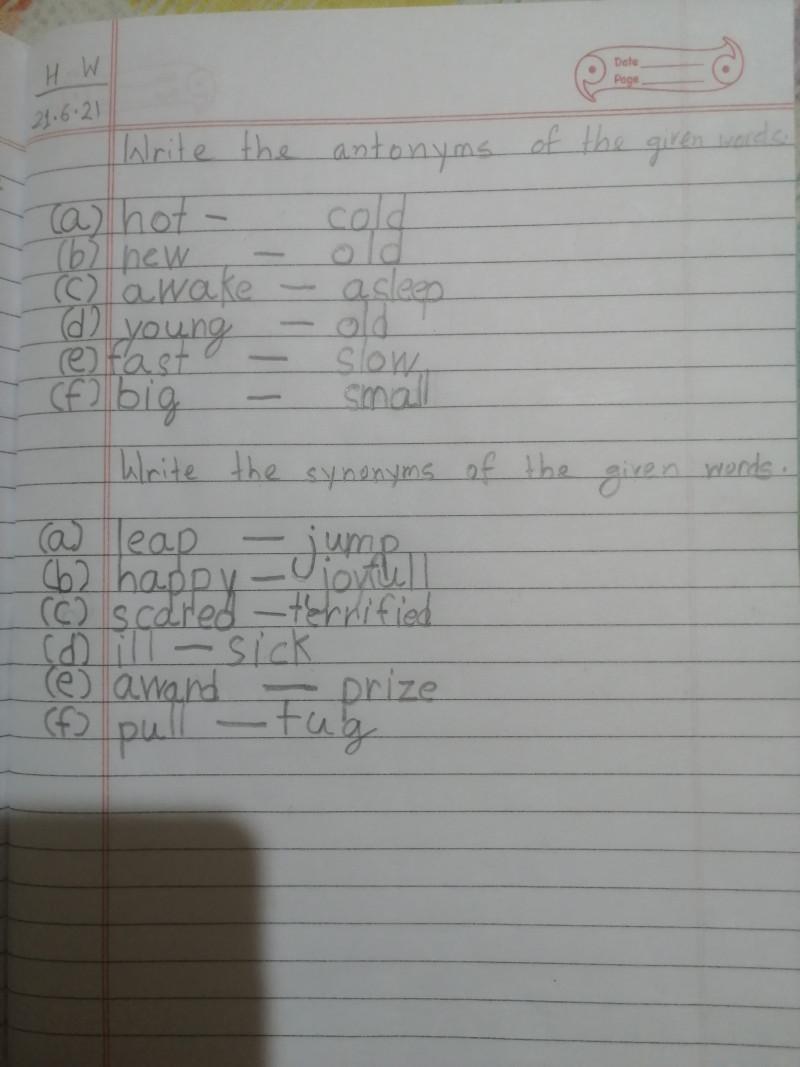 H W
21.6.21
Date
Page
Write the antonyms of the given words.
(a) hot - cold
(b) new - old
(c) awake - asleep
(d) young - old
(e) fast - slow
(f) big - small
Write the synonyms of the given words.
(a) leap - jump
(b) happy - joyfull
(c) scared - terrified
(d) ill - sick
(e) award - prize
(f) pull - tug